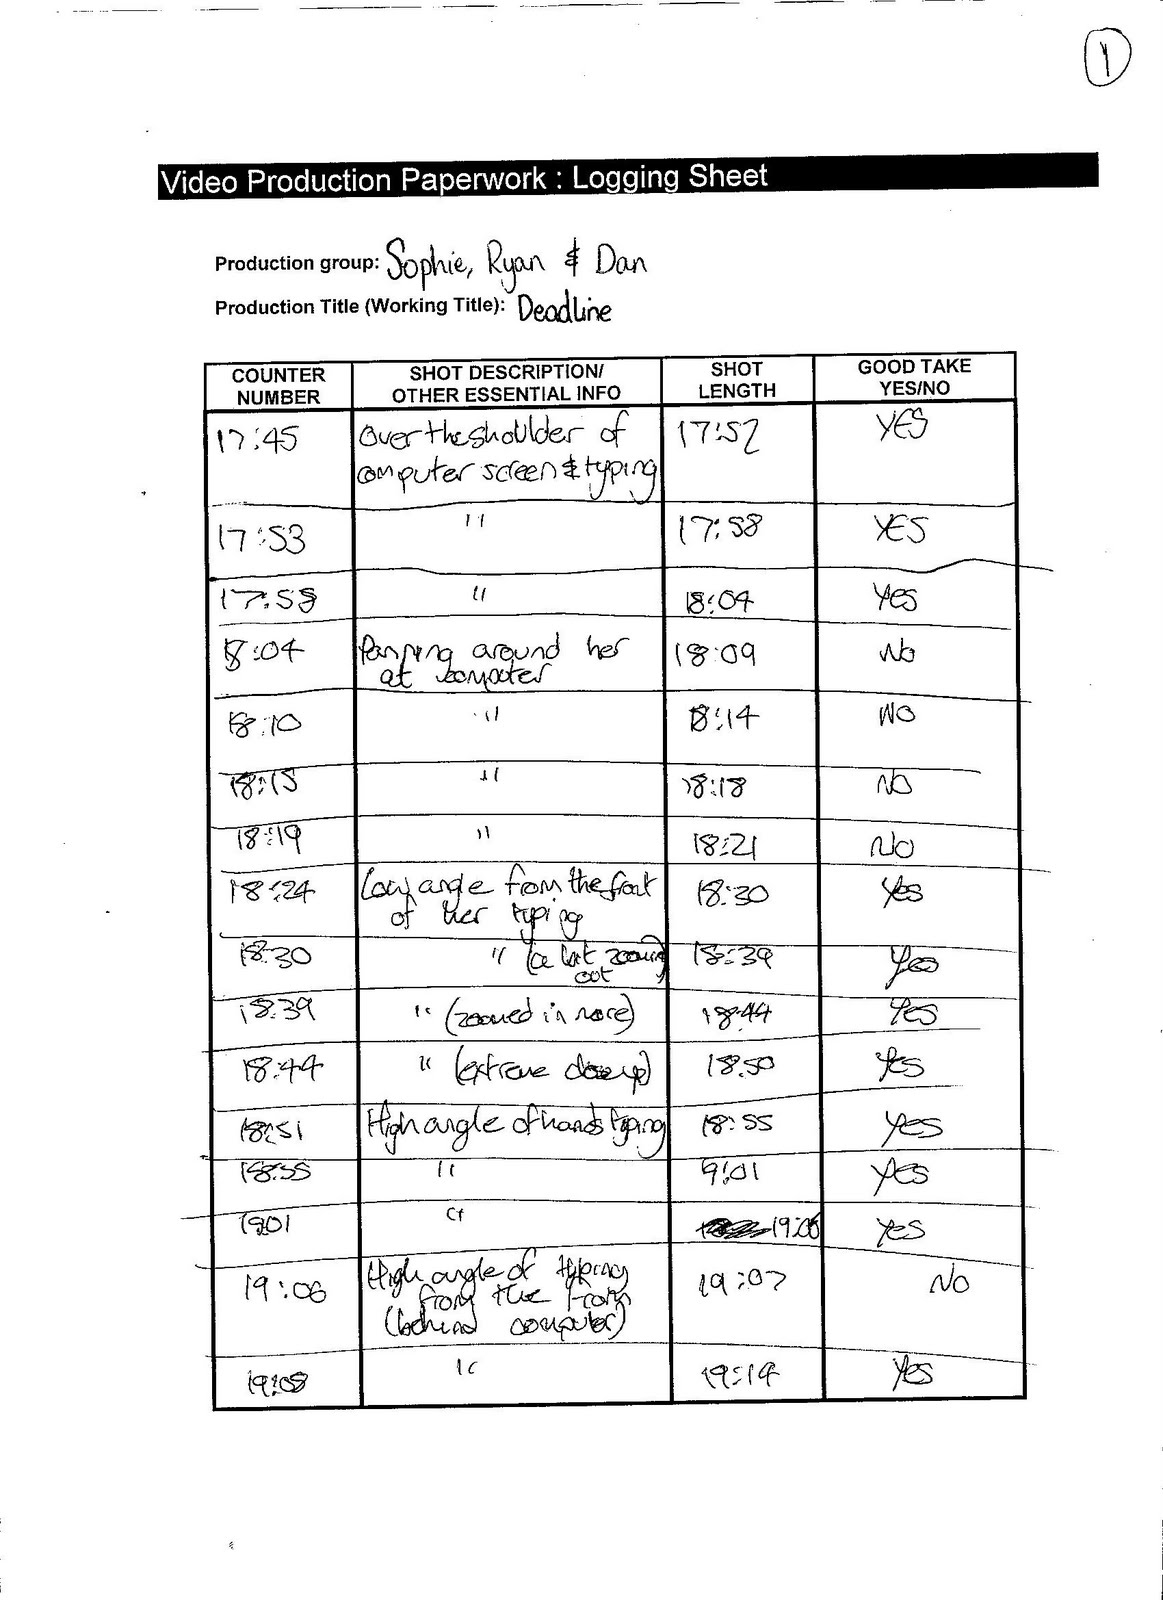 1
Video Production Paperwork : Logging Sheet
Production group: Sophie, Ryan & Dan
Production Title (Working Title): Deadline
COUNTER NUMBER SHOT DESCRIPTION/ OTHER ESSENTIAL INFO SHOT LENGTH GOOD TAKE YES/NO
17:45 Over the shoulder of 17:52 YES
computer screen & typing
17:53 " 17:58 YES
17:58 " 18:04 Yes
18:04 Panning around her 18:09 No
at computer
18:10 " 18:14 NO
18:15 " 18:18 NO
18:19 " 18:21 NO
18:24 Low angle from the front 18:30 Yes
of her typing
18:30 " 18:39 Yes
zooming
out
18:39 " (zoomed in more) 18:44 Yes
18:44 " (extreme close up) 18:50 Yes
18:51 High angle of hands typing 18:55 Yes
18:55 " 9:01 Yes
1901 " 19:06 Yes
19:06 High angle of typing 19:07 NO
from the front
(behind computer)
19:08 " 19:14 Yes